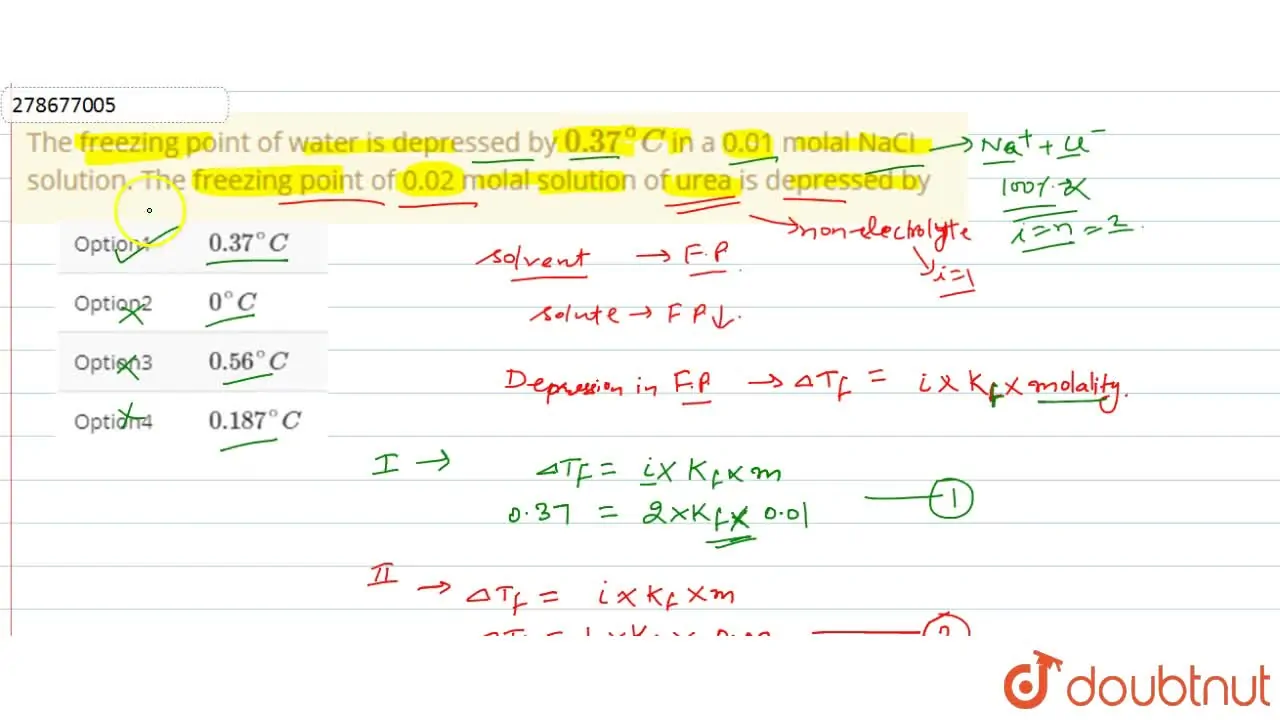 278677005
The freezing point of water is depressed by 0.37°C in a 0.01 molal NaCl
solution. The freezing point of 0.02 molal solution of urea is depressed by
→ Na⁺ + Cl⁻
100%
i = n = 2
Option1 0.37°C
Option2 0°C
Option3 0.56°C
Option4 0.187°C
→ non-electrolyte
i = 1
solvent → F.P
solute → F P↓.
Depression in F.P → ΔTf = i × Kf × molality.
I → ΔTf = i × Kf × m
0.37 = 2 × Kf × 0.01 ①
II → ΔTf = i × Kf × m
doubtnut